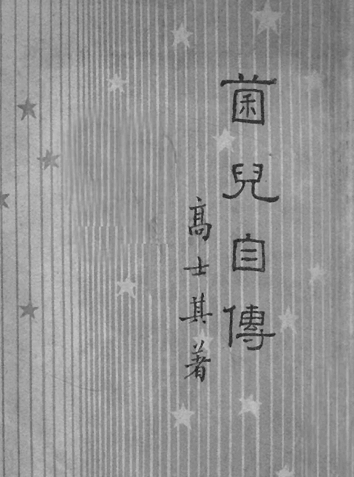 菌兒自傳
高士其著